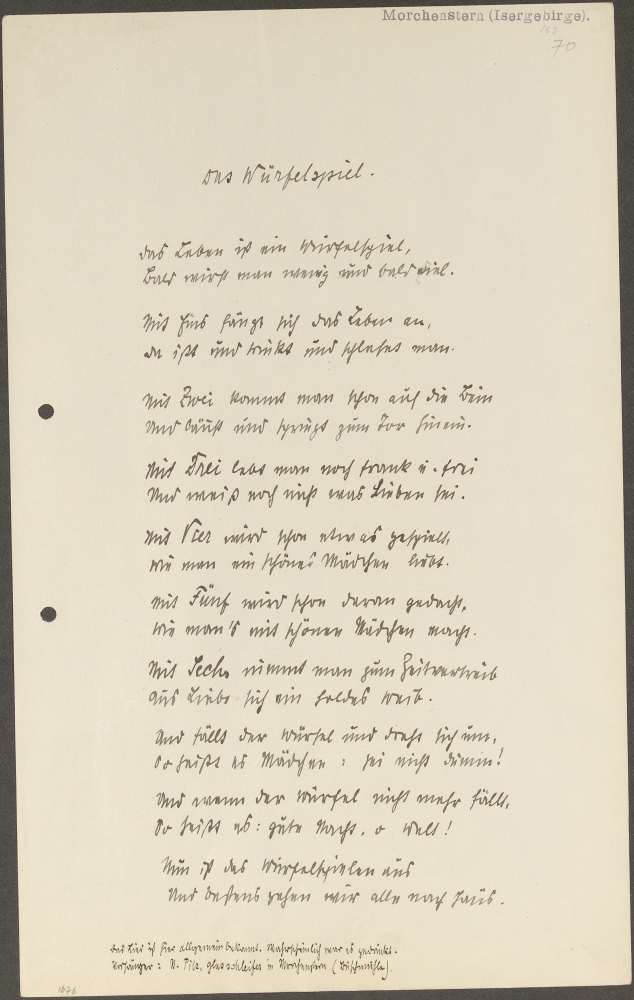 Morchenstern (Isergebirge).
70
Das Würfelspiel.
Das Leben ist ein Würfelspiel,
Bald wirft man wenig und bald viel.
Mit Eins fängt sich das Leben an,
Da ißt und trinkt und schlafet man.
Mit Zwei kommt man schon auf die Bein
Und läuft und springt zum Tor hinein.
Mit Drei lebt man noch frank u. frei
Und weiß noch nicht was Lieben sei.
Mit Vier wird schon etwas gespielt,
Wie man ein schönes Mädchen liebt.
Mit Fünf wird schon daran gedacht,
Wie man's mit schönen Mädchen macht.
Mit Sechs nimmt man zum Zeitvertreib
Aus Liebe sich ein holdes Weib.
Und fällt der Würfel und dreht sich um,
So heißt es Mädchen: sei nicht dumm!
Und wenn der Würfel nicht mehr fällt,
So heißt es: gute Nacht, o Welt!
Nun ist das Würfelspielen aus
Und bestens gehen wir alle nach Haus.
Das Lied ist hier allgemein bekannt. Wahrscheinlich war es gedruckt.
Vorsänger: N. Pilz, Glasschleifer in Morchenstern (Buschmühle).
1876